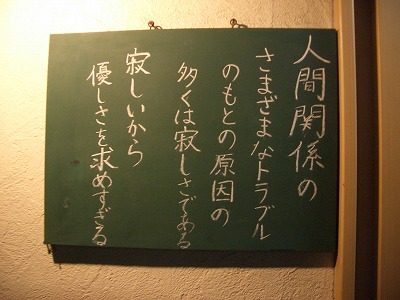 人間関係の
さまざまなトラブル
のもとの原因の
多くは寂しさである
寂しいから
優しさを求めすぎる